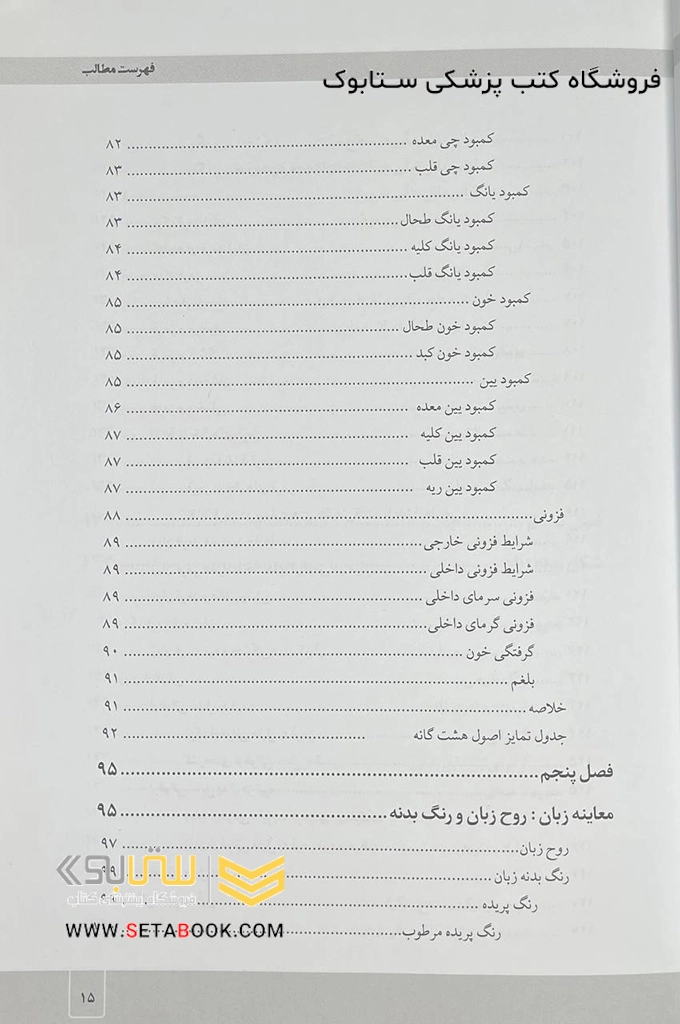 فروشگاه کتب پزشکی ستابوک
فهرست مطالب
کمبود چی معده ... ۸۲
کمبود چی قلب ... ۸۳
کمبود یانگ ... ۸۳
کمبود یانگ طحال ... ۸۳
کمبود یانگ کلیه ... ۸۴
کمبود یانگ قلب ... ۸۴
کمبود خون ... ۸۵
کمبود خون طحال ... ۸۵
کمبود خون کبد ... ۸۵
کمبود یین ... ۸۵
کمبود یین معده ... ۸۶
کمبود یین کلیه ... ۸۷
کمبود یین قلب ... ۸۷
کمبود یین ریه ... ۸۷
فزونی ... ۸۸
شرایط فزونی خارجی ... ۸۹
شرایط فزونی داخلی ... ۸۹
فزونی سرمای داخلی ... ۸۹
فزونی گرمای داخلی ... ۸۹
گرفتگی خون ... ۹۰
بلغم ... ۹۱
خلاصه ... ۹۱
جدول تمایز اصول هشت گانه ... ۹۲
فصل پنجم ... ۹۵
معاینه زبان : روح زبان و رنگ بدنه ... ۹۵
روح زبان ... ۹۷
رنگ بدنه زبان ... ۹۹
رنگ پریده ...
رنگ پریده مرطوب ...
ستابوک
فروشگاه اینترنتی کتاب
WWW.SETABOOK.COM
۱۵